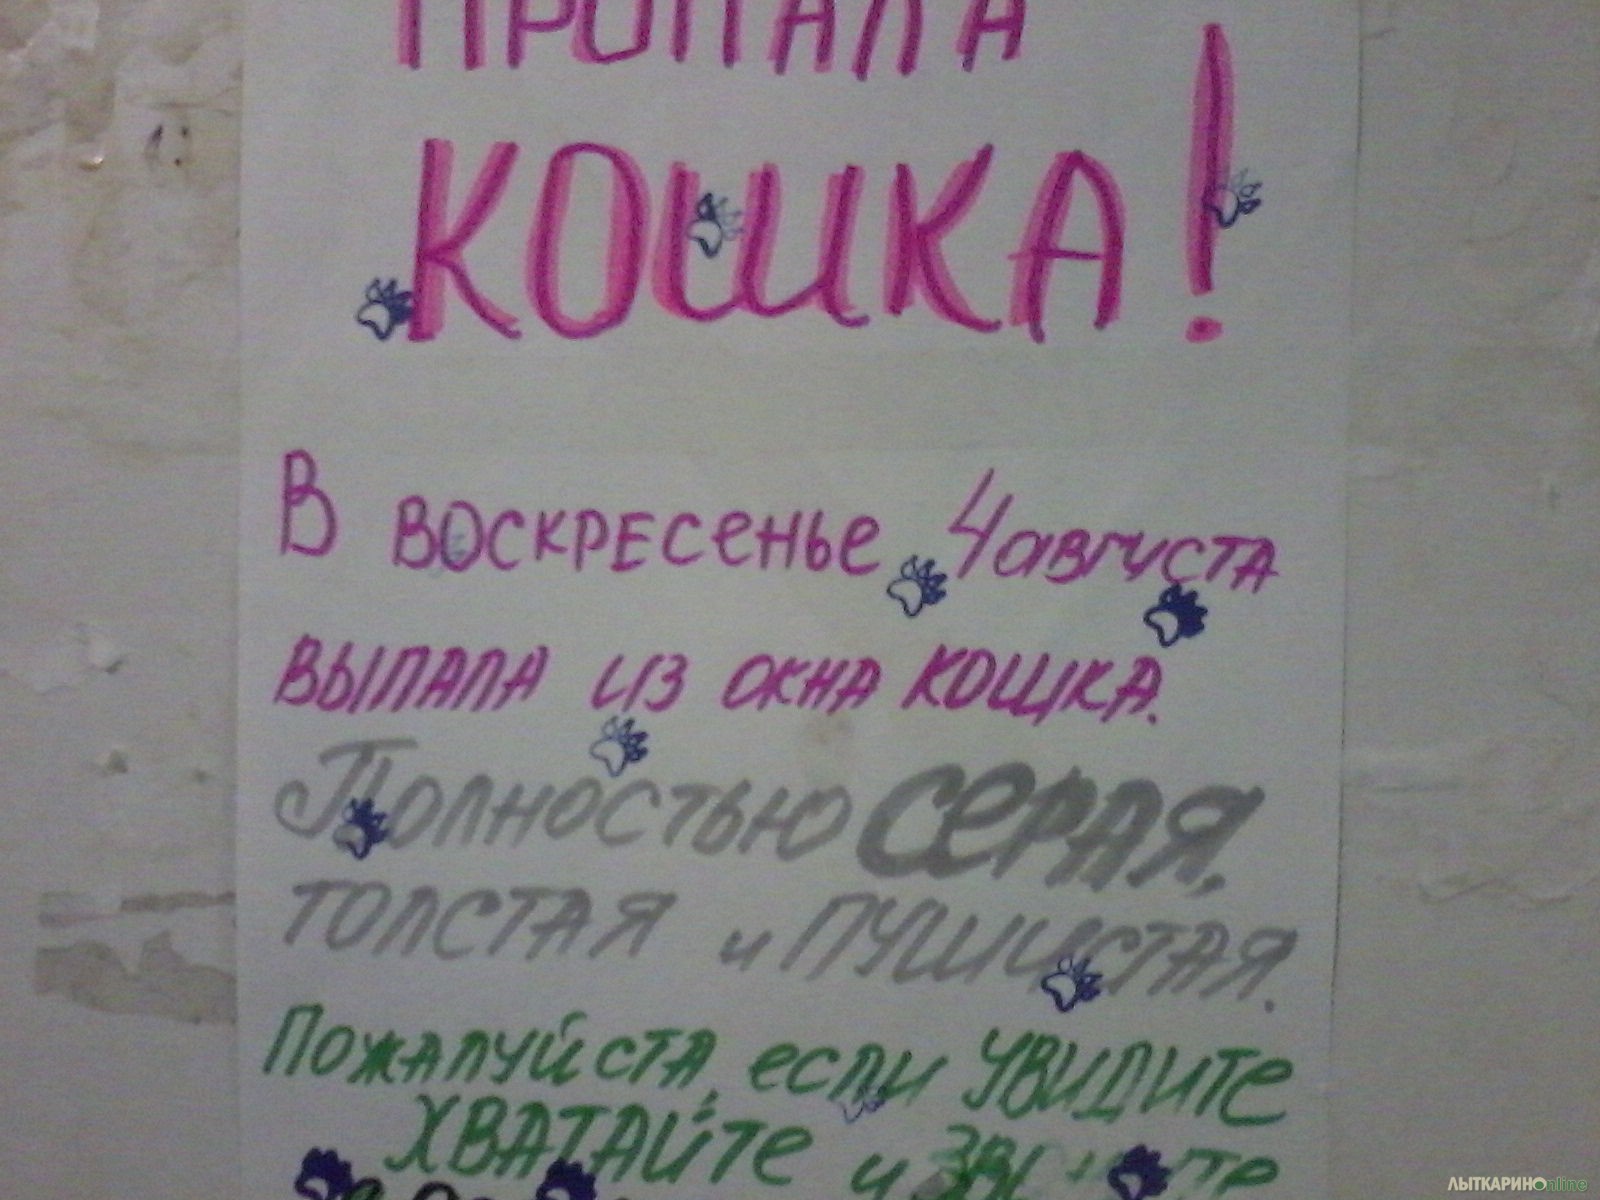 ПРОПАЛА
КОШКА!
В ВОСКРЕСЕНЬЕ 4 августа
ВЫПАЛА ИЗ ОКНА КОШКА.
Полностью СЕРАЯ,
ТОЛСТАЯ и ПУШИСТАЯ.
Пожалуйста, если УВИДИТЕ
ХВАТАЙТЕ и
ЛЫТКАРИНОonline